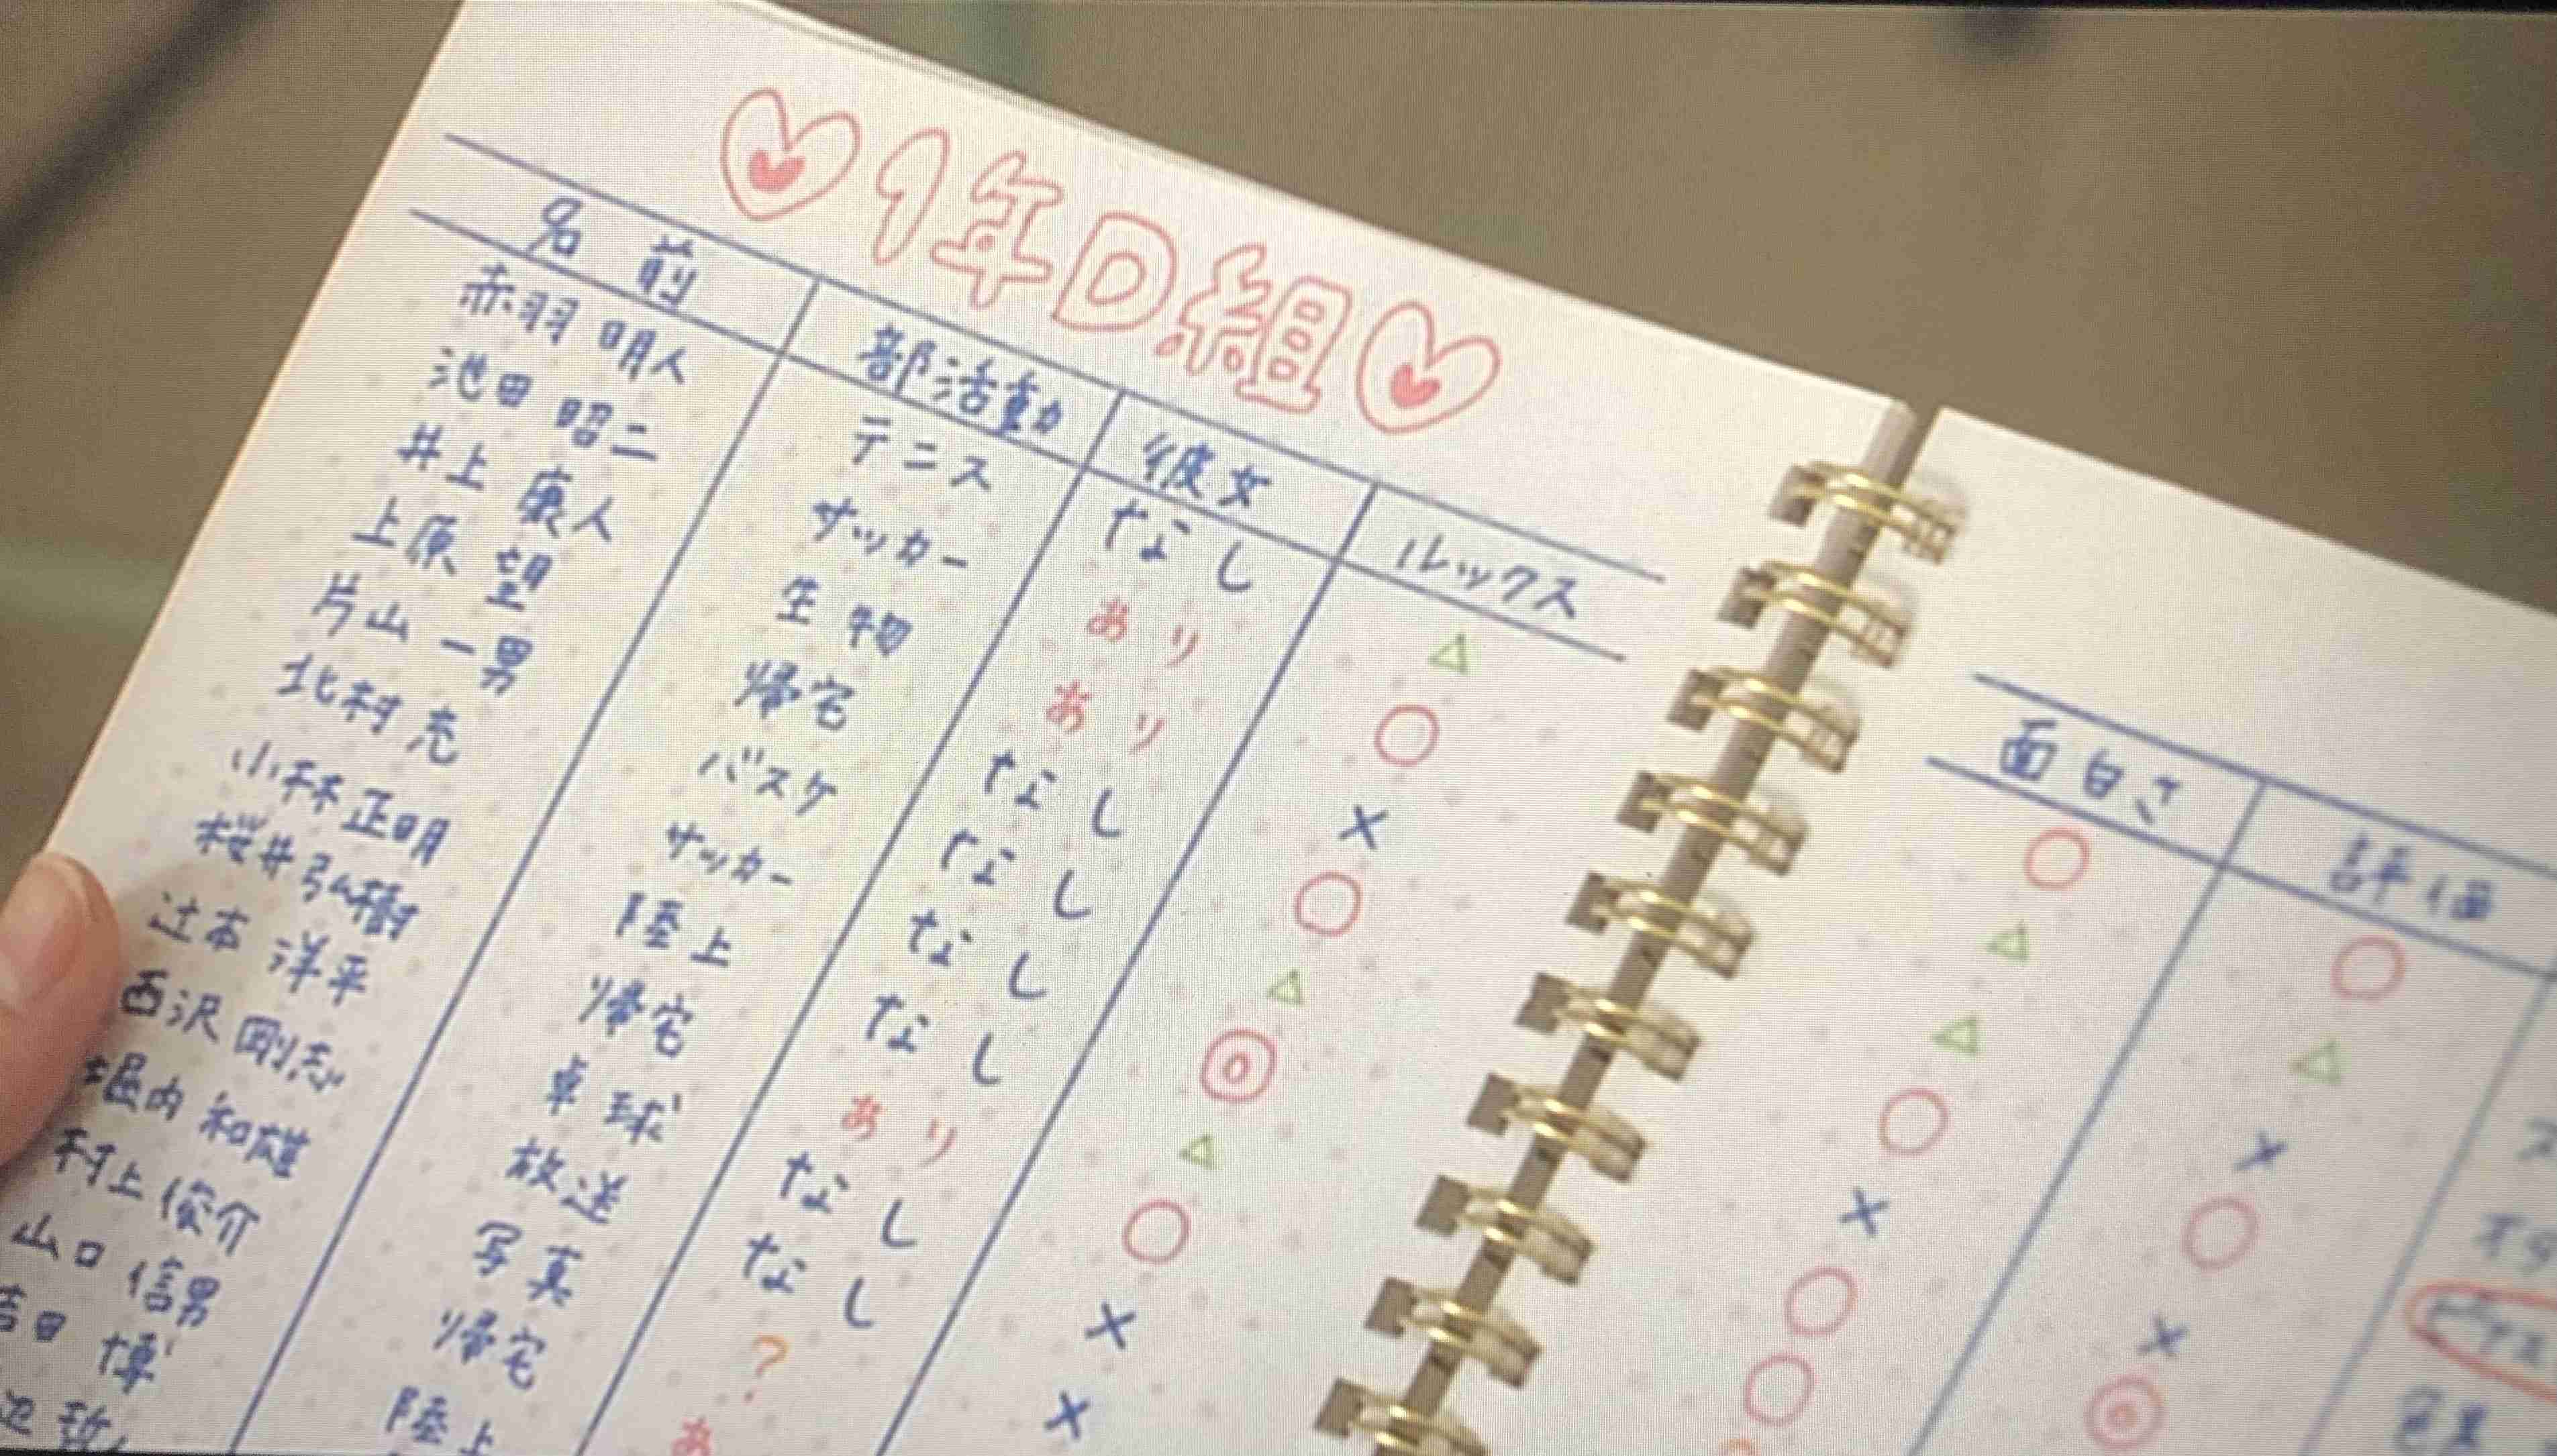 ♡1年D組♡
名前 部活動 彼女 ルックス 面白さ 評価
赤羽 明人 テニス なし △ ○ ○
池田 昭二 サッカー あり ○ △ △
井上 康人 生物 あり × △ ×
上原 望 帰宅 なし ○ ○ ○
片山 一男 バスケ なし △ × ×
北村 充 サッカー なし ◎ ○ ◎
小林 正明 陸上 なし △ ○
桜井 弘樹 帰宅 あり ○
辻本 洋平 卓球 なし ×
西沢 剛志 放送 なし ×
堀内 和雄 写真 ?
村上 俊介 帰宅 あ
山口 信男 陸上
吉田 博